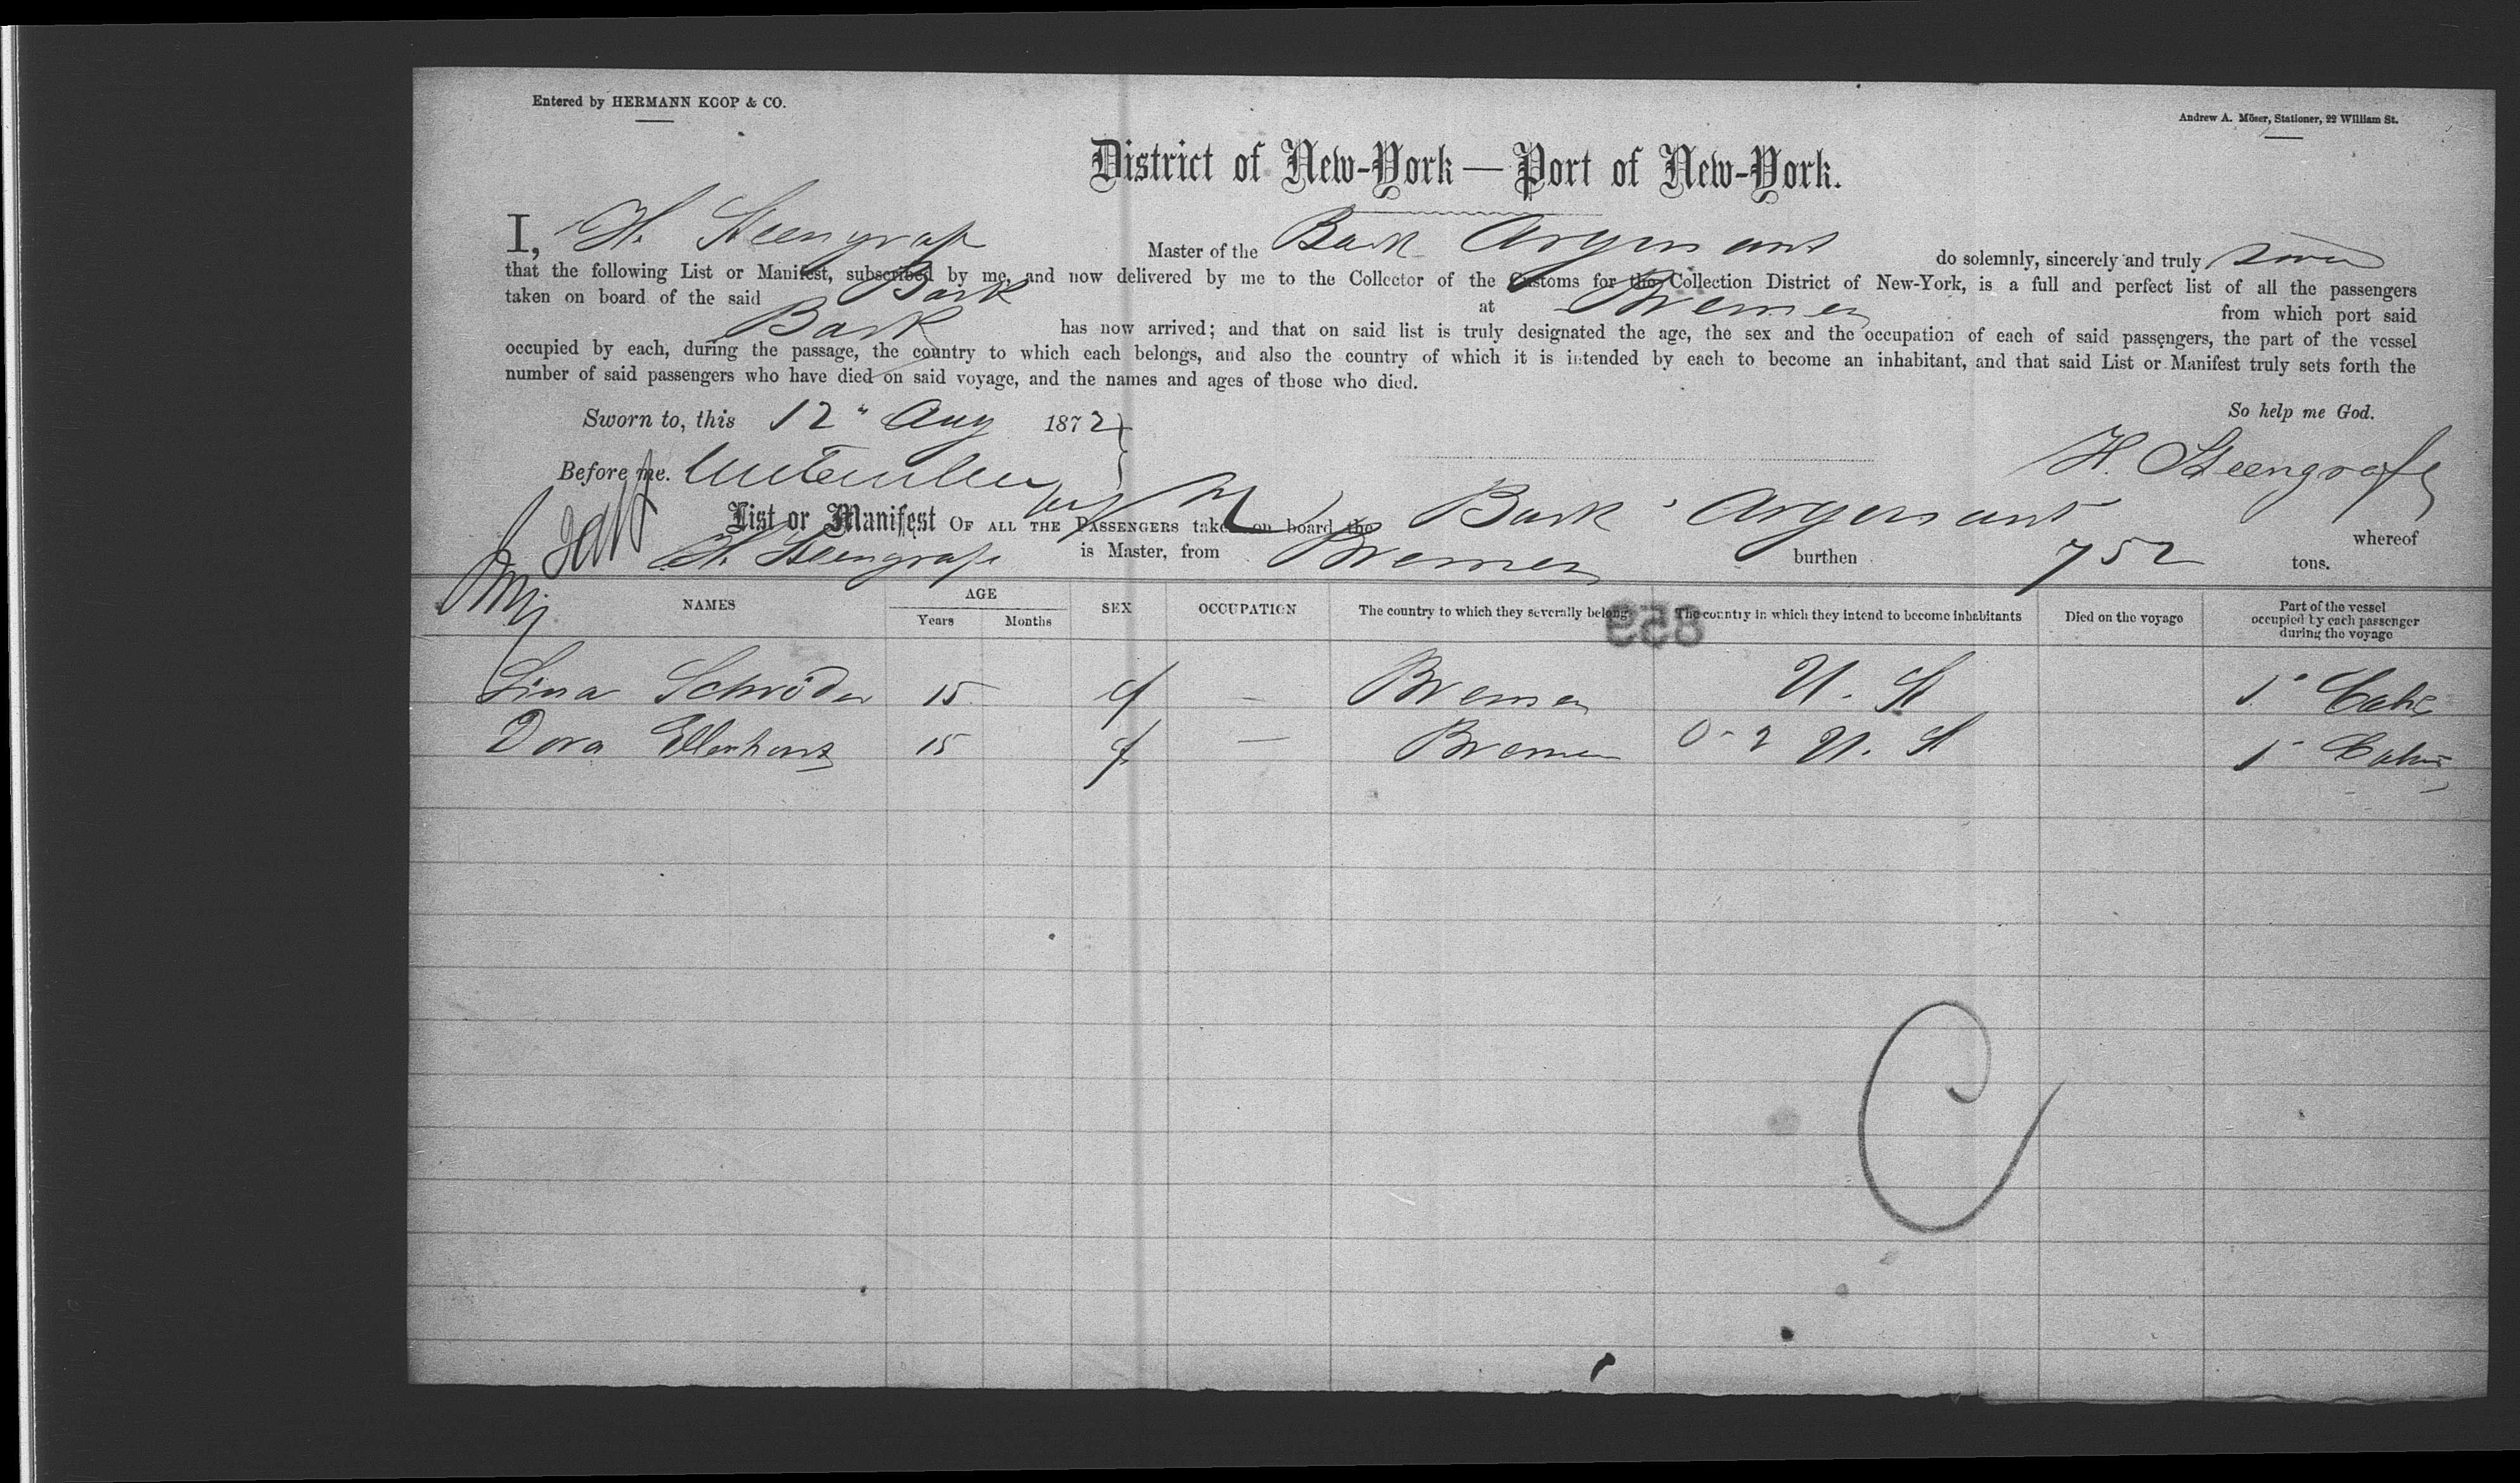 Entered by HERMANN KOOP & CO.
Andrew A. Möser, Stationer, 22 William St.
District of New-York — Port of New-York.
I, H. Steengrafe Master of the Bark Argonaut do solemnly, sincerely and truly
that the following List or Manifest, subscribed by me, and now delivered by me to the Collector of the Customs for the Collection District of New-York, is a full and perfect list of all the passengers
taken on board of the said Bark at Bremen from which port said
Bark has now arrived; and that on said list is truly designated the age, the sex and the occupation of each of said passengers, the part of the vessel
occupied by each, during the passage, the country to which each belongs, and also the country of which it is intended by each to become an inhabitant, and that said List or Manifest truly sets forth the
number of said passengers who have died on said voyage, and the names and ages of those who died.
Sworn to, this 12" Aug 1872
So help me God.
Before me. H. Steengrafe
List or Manifest OF ALL THE PASSENGERS taken on board the Bark Argonaut whereof
H. Steengrafe is Master, from Bremen burthen 752 tons.
NAMES AGE Years Months SEX OCCUPATION The country to which they severally belong The country in which they intend to become inhabitants Died on the voyage Part of the vessel occupied by each passenger during the voyage
853
Lina Schröder 15 f — Bremen U. St 1" Cabin
Dora 15 f — Bremen 0-2 U. St 1" Cabin
C